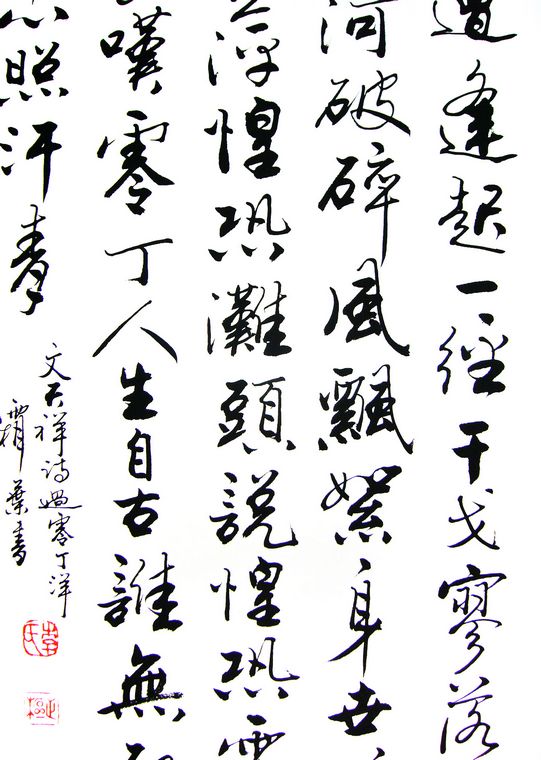 遭逢起一經干戈寥落
河破碎風飄絮身世
萍惶恐灘頭說惶恐零
嘆零丁人生自古誰無
心照汗青
文天祥詩過零丁洋
葉書